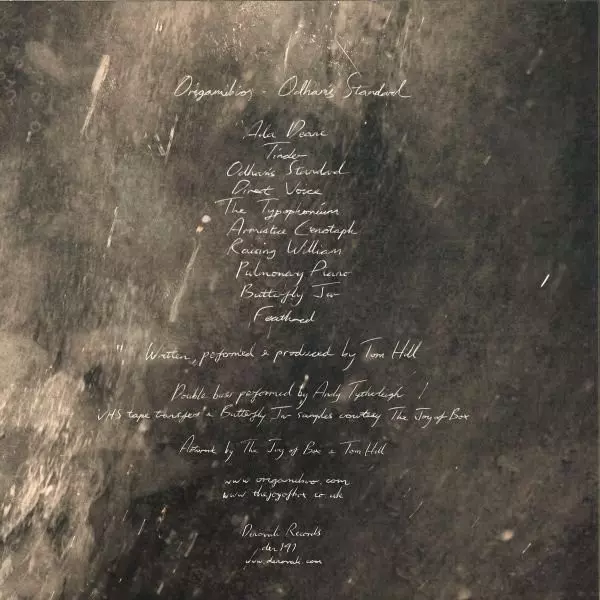 Origamibiro - Odham's Standard
Ada Deane
Tinder
Odham's Standard
Direct Voice
The Typophonium
Armistice Cenotaph
Raising William
Pulmonary Piano
Butterfly Jar
Feathered
Written, performed & produced by Tom Hill
Double bass performed by Andy Tytherleigh
VHS tape transfers & Butterfly Jar samples courtesy The Joy of Box
Artwork by The Joy of Box & Tom Hill
www.origamibiro.com
www.thejoyofbox.co.uk
Denovali Records
den191
www.denovali.com